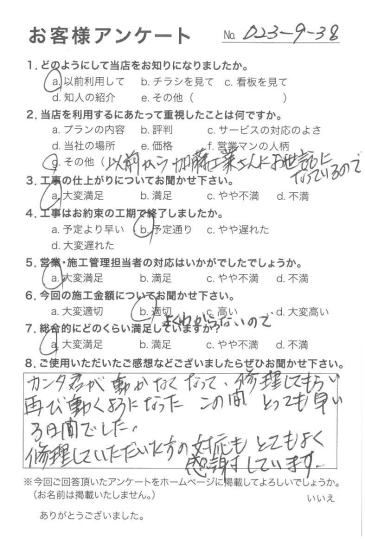 お客様アンケート No. 023-9-38
1. どのようにして当店をお知りになりましたか。
a. 以前利用して b. チラシを見て c. 看板を見て
d. 知人の紹介 e. その他( )
2. 当店を利用するにあたって重視したことは何ですか。
a. プランの内容 b. 評判 c. サービスの対応のよさ
d. 当社の場所 e. 価格 f. 営業マンの人柄
g. その他(以前から加藤工業さんにお世話になっているので
3. 工事の仕上がりについてお聞かせ下さい。
a. 大変満足 b. 満足 c. やや不満 d. 不満
4. 工事はお約束の工期で終了しましたか。
a. 予定より早い b. 予定通り c. やや遅れた
d. 大変遅れた
5. 営業・施工管理担当者の対応はいかがでしたでしょうか。
a. 大変満足 b. 満足 c. やや不満 d. 不満
6. 今回の施工金額についてお聞かせ下さい。
a. 大変適切 b. 適切 c. 高い d. 大変高い
よくわからないので
7. 総合的にどのくらい満足していますか?
a. 大変満足 b. 満足 c. やや不満 d. 不満
8. ご使用いただいたご感想などございましたらぜひお聞かせ下さい。
カンタ君が動かなくなって、修理してもらい
再び動くようになった この間 とっても早い
3日間でした。
修理していただいた方の対応もとてもよく
感謝しています。
※今回ご回答頂いたアンケートをホームページに掲載してよろしいでしょうか。
(お名前は掲載いたしません。) いいえ
ありがとうございました。